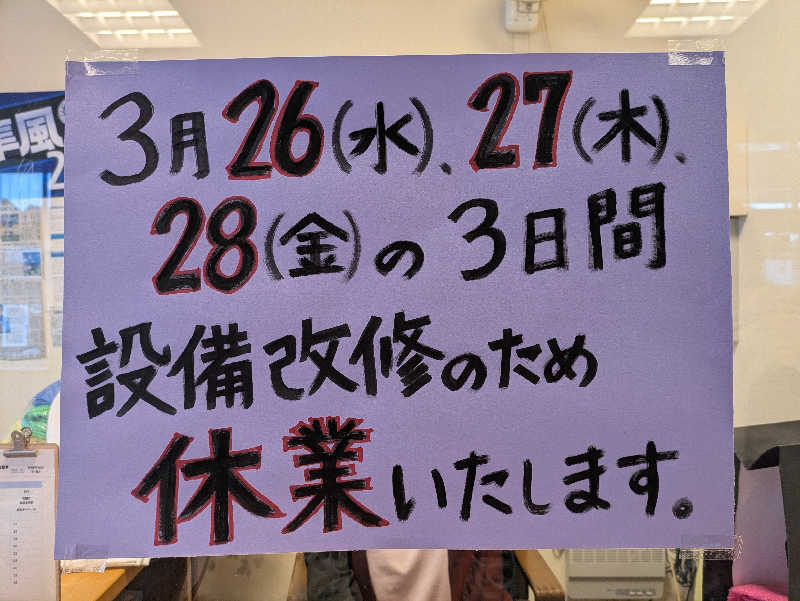 3月26(水)、27(木)、
28(金)の3日間
設備改修のため
休業いたします。